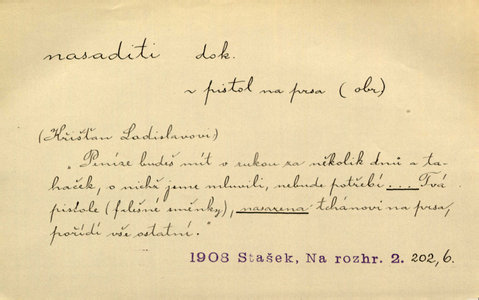 nasaditi dok.
~ pistol na prsa (obr)
(Křišťan Ladislavovi)
"Peníze budeš mít v rukou za několik dnů a ta-
haček, o nichž jsme mluvili, nebude potřebí ... Tvá
pistole (falešné směnky), nasazena tchánovi na prsa,
pořídí vše ostatní."
1908 Stašek, Na rozhr. 2. 202,6.